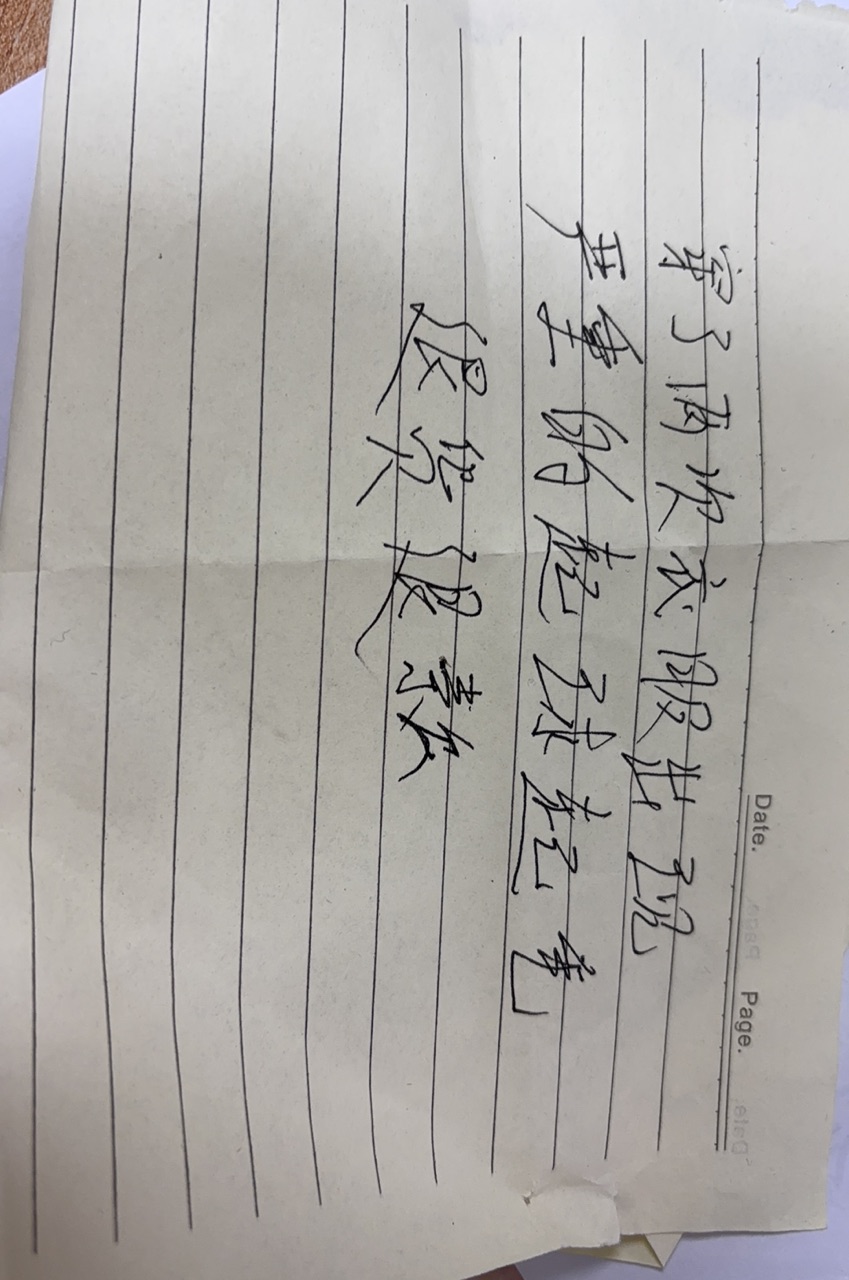 Date. Page.
穿了两次衣服出现
严重的起球起毛
退货退款